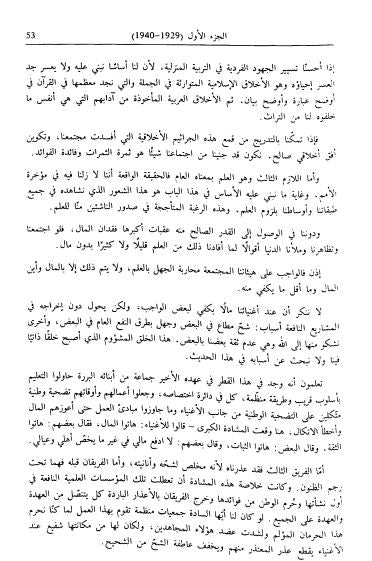 الجزء الأول (1929-1940) 53
إذا أحسنّا تسيير الجهود الفردية في التربية المنزلية. لأن لنا أساسًا نبني عليه ولا يعسر جد
العسر إحياؤه وهو الأخلاق الإسلامية المتوارثة في الجملة والتي نجد معظمها في القرآن في
أوضح عبارة وأوضح بيان. ثم الأخلاق العربية المأخوذة من آدابهم التي هي أنفس ما
خلفوه لنا من التراث.
فإذا تمكنّا بالتدريج من قمع هذه الجراثيم الأخلاقية التي أفسدت مجتمعنا، وتكوين
أفق أخلاقي صالح. نكون قد جنينا من اجتماعنا شيئًا هو ثمرة الثمرات وفائدة الفوائد.
وأما اللازم الثالث وهو العلم بمعناه العام فالحقيقة الواقعة أننا لا زلنا فيه في مؤخرة
الأمم. وغاية ما نبني عليه الأساس في هذا الباب هو هذا الشعور الذي نشاهده في جميع
طبقاتنا وأوساطنا بلزوم العلم. وهذه الرغبة المتأججة في صدور الناشئين منّا للعلم.
ودوننا في الوصول إلى القدر الصالح منه عقبات أكبرها فقدان المال، فلو اجتمعنا
وتظاهرنا وملأنا الدنيا أقوالًا لما أفادنا ذلك من العلم قليلًا ولا كثيرًا بدون مال.
إذن فالواجب على هيئاتنا المجتمعة محاربة الجهل بالعلم، ولا يتم ذلك إلا بالمال وأين
المال وما أقل ما يكفي منه.
لا ننكر أن عند أغنيائنا مالًا يكفي لبعض الواجب، ولكن يحول دون إخراجه في
المشاريع النافعة أسباب: شحّ مطاع في البعض وجهل بطرق النفع العام في البعض، وأخرى
نشكو منها إلى الله وهي عدم ثقة بعضنا بالبعض. هذا الخلق المشؤوم الذي أصبح خلقًا ذاتيًا
فينا ولا نبحث عن أسبابه في هذا الحديث.
تعلمون أنه وجد في هذا القطر في عهده الأخير جماعة من أبنائه البررة حاولوا التعليم
بأسلوب قريب وطريقة منظّمة، كل في دائرة اختصاصه، وجعلوا أعمالهم وأوقاتهم تضحية وطنية
متكلين على التضحية الوطنية من جانب الأغنياء وما جاوزوا مبادئ العمل حتى أعوزهم المال
وأخطأ الاتكال، هنا وقعت المشادة الكبرى – قالوا للأغنياء: هاتوا المال، فقال بعضهم: هاتوا
الثقة. وقال البعض: هاتوا الثبات، وقال بعضهم: لا ادفع مالي في غير ما يخصّ أهلي وعيالي.
أمّا الفريق الثالث فقد عذرناه لأنه مخلص لشحّه وأنانيته، وأما الفريقان قبله فهما تحت
رجم الظنون. وكانت خلاصة هذه المشادة أن تعطلت تلك المؤسسات العلمية النافعة في
أول نشأتها وحُرم الوطن من فوائدها وخرج الفريقان بالأعذار الباردة كل يتنصّل من العهدة
والعهدة على الجميع. لو كان لنا أيّها السادة جمعيات منظمة تقوم بهذا العمل لما كنّا نحرم
هذا الحرمان المؤلم ولشدت عضد هؤلاء المجاهدين، ولكان لها من مكانتها شفيع عند
الأغنياء يقطع عذر المعتذر منهم ويخفف عاطفة الشحّ من الشحيح.